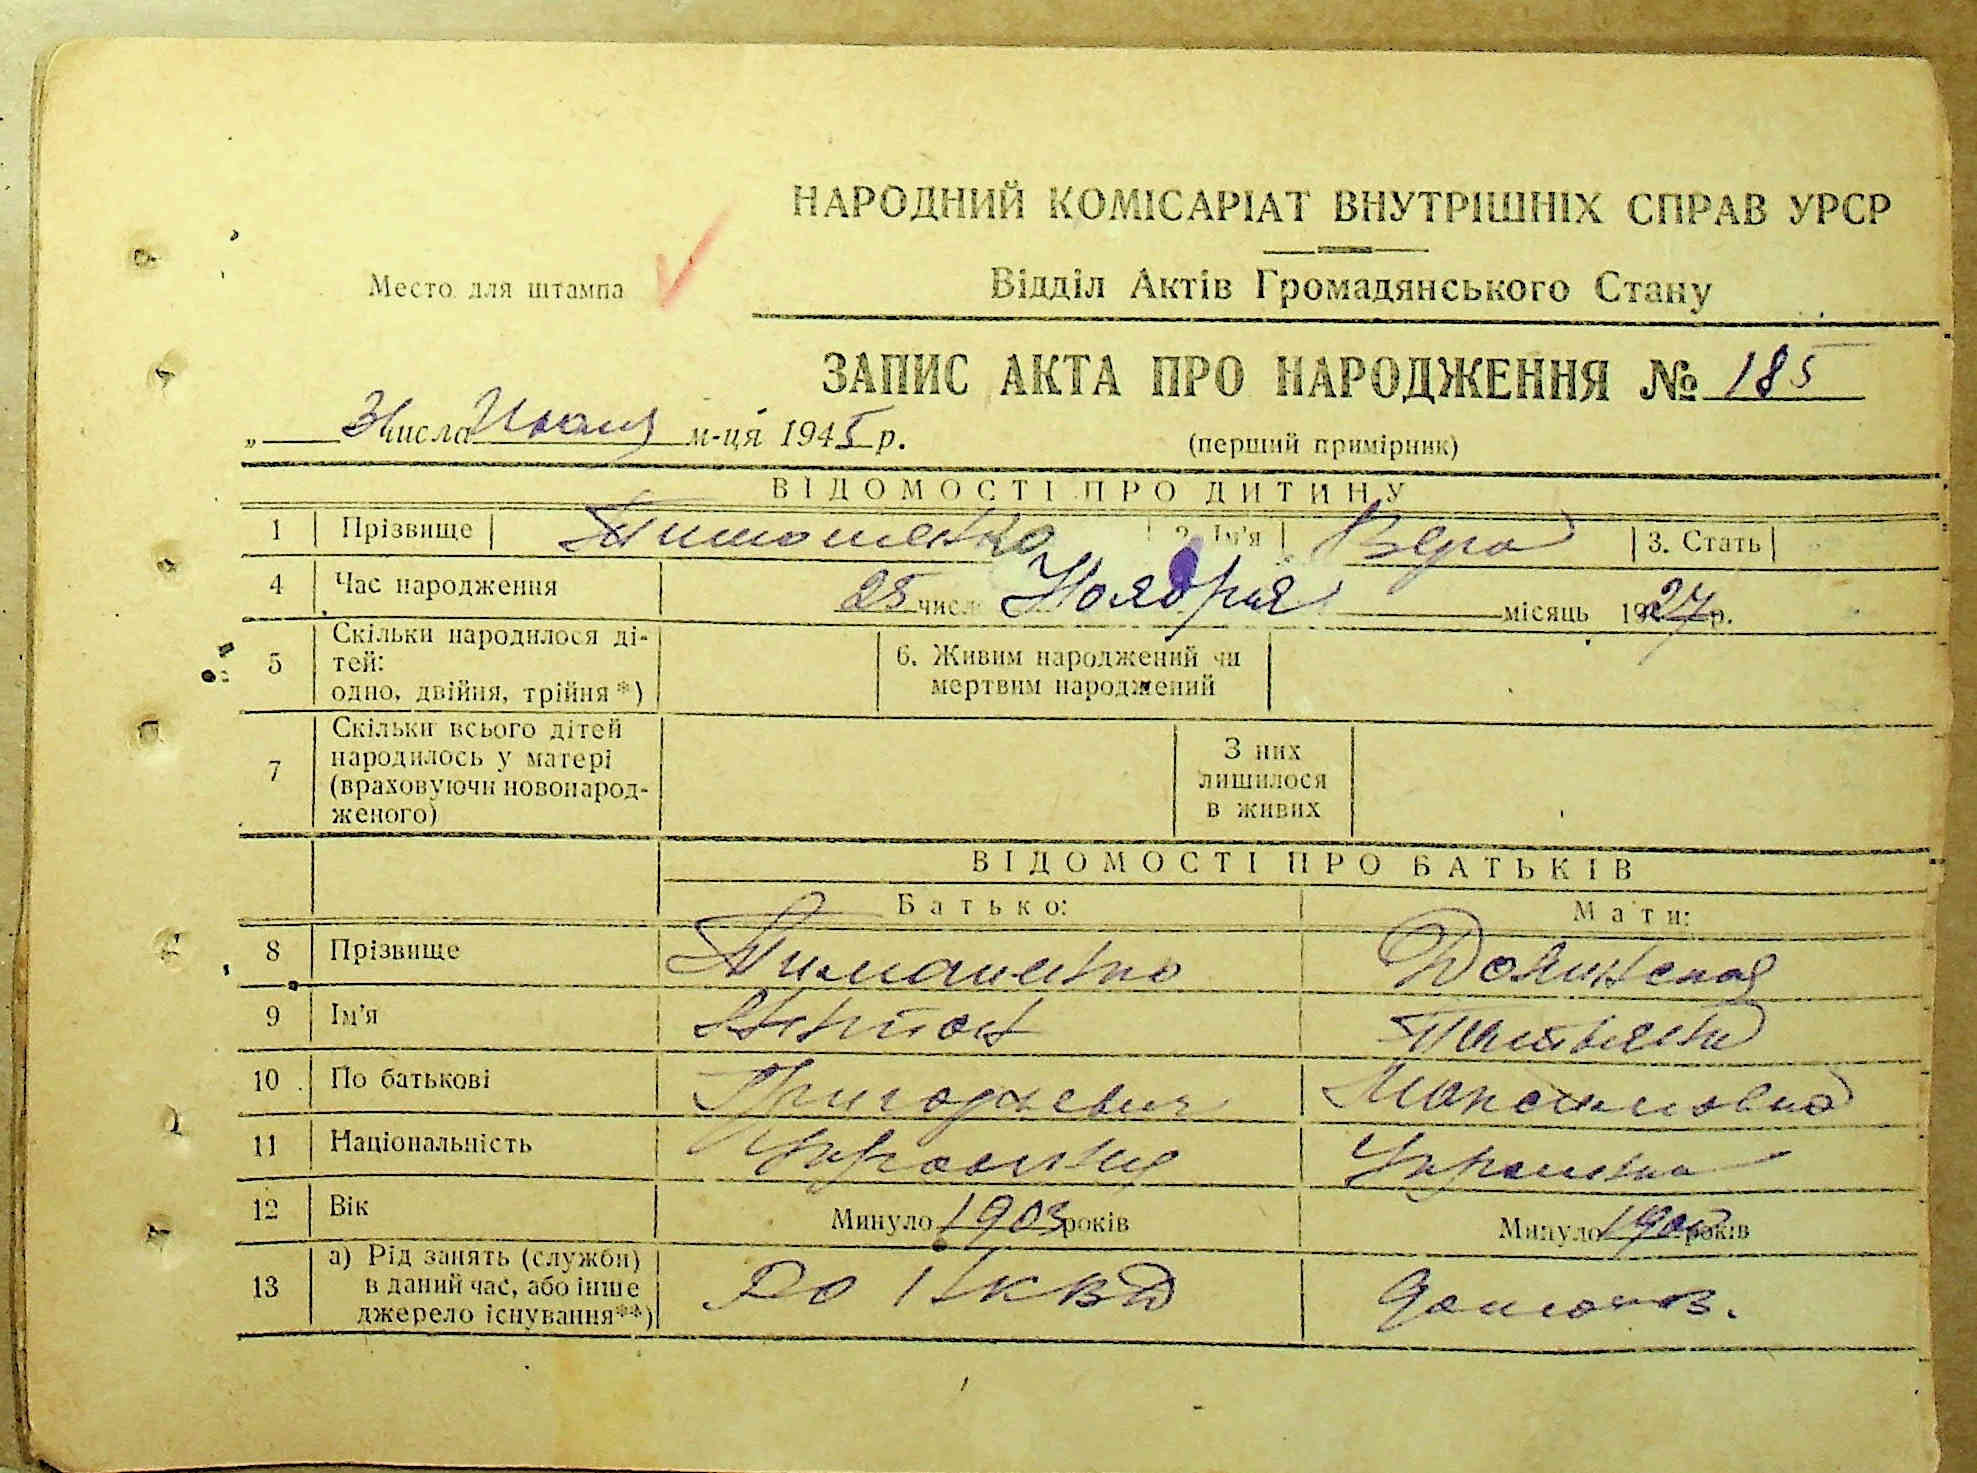 НАРОДНИЙ КОМІСАРІАТ ВНУТРІШНІХ СПРАВ УРСР
Место для штампа
Відділ Актів Громадянського Стану
ЗАПИС АКТА ПРО НАРОДЖЕННЯ № 185
„ 31 числа Июля м-ця 1945 р.
(перший примірник)
ВІДОМОСТІ ПРО ДИТИНУ
1 Прізвище Тимошенко 2. Ім'я Вера 3. Стать
4 Час народження 25 числ Ноября місяць 1927 р.
5 Скільки народилося ді-
тей:
одно, двійня, трійня *)
6. Живим народжений чи
мертвим народжений
7 Скільки всього дітей
народилось у матері
(враховуючи новонарод-
женого)
З них
лишилося
в живих
ВІДОМОСТІ ПРО БАТЬКІВ
Батько: Мати:
8 Прізвище Тимошенко Долинская
9 Ім'я Антон Татьяна
10 По батькові Григорьевич Максимовна
11 Національність Украинец Украинка
12 Вік Минуло 1903 років Минуло років
13 а) Рід занять (служби)
в даний час, або інше
джерело існування**)
РО НКВД домохоз.